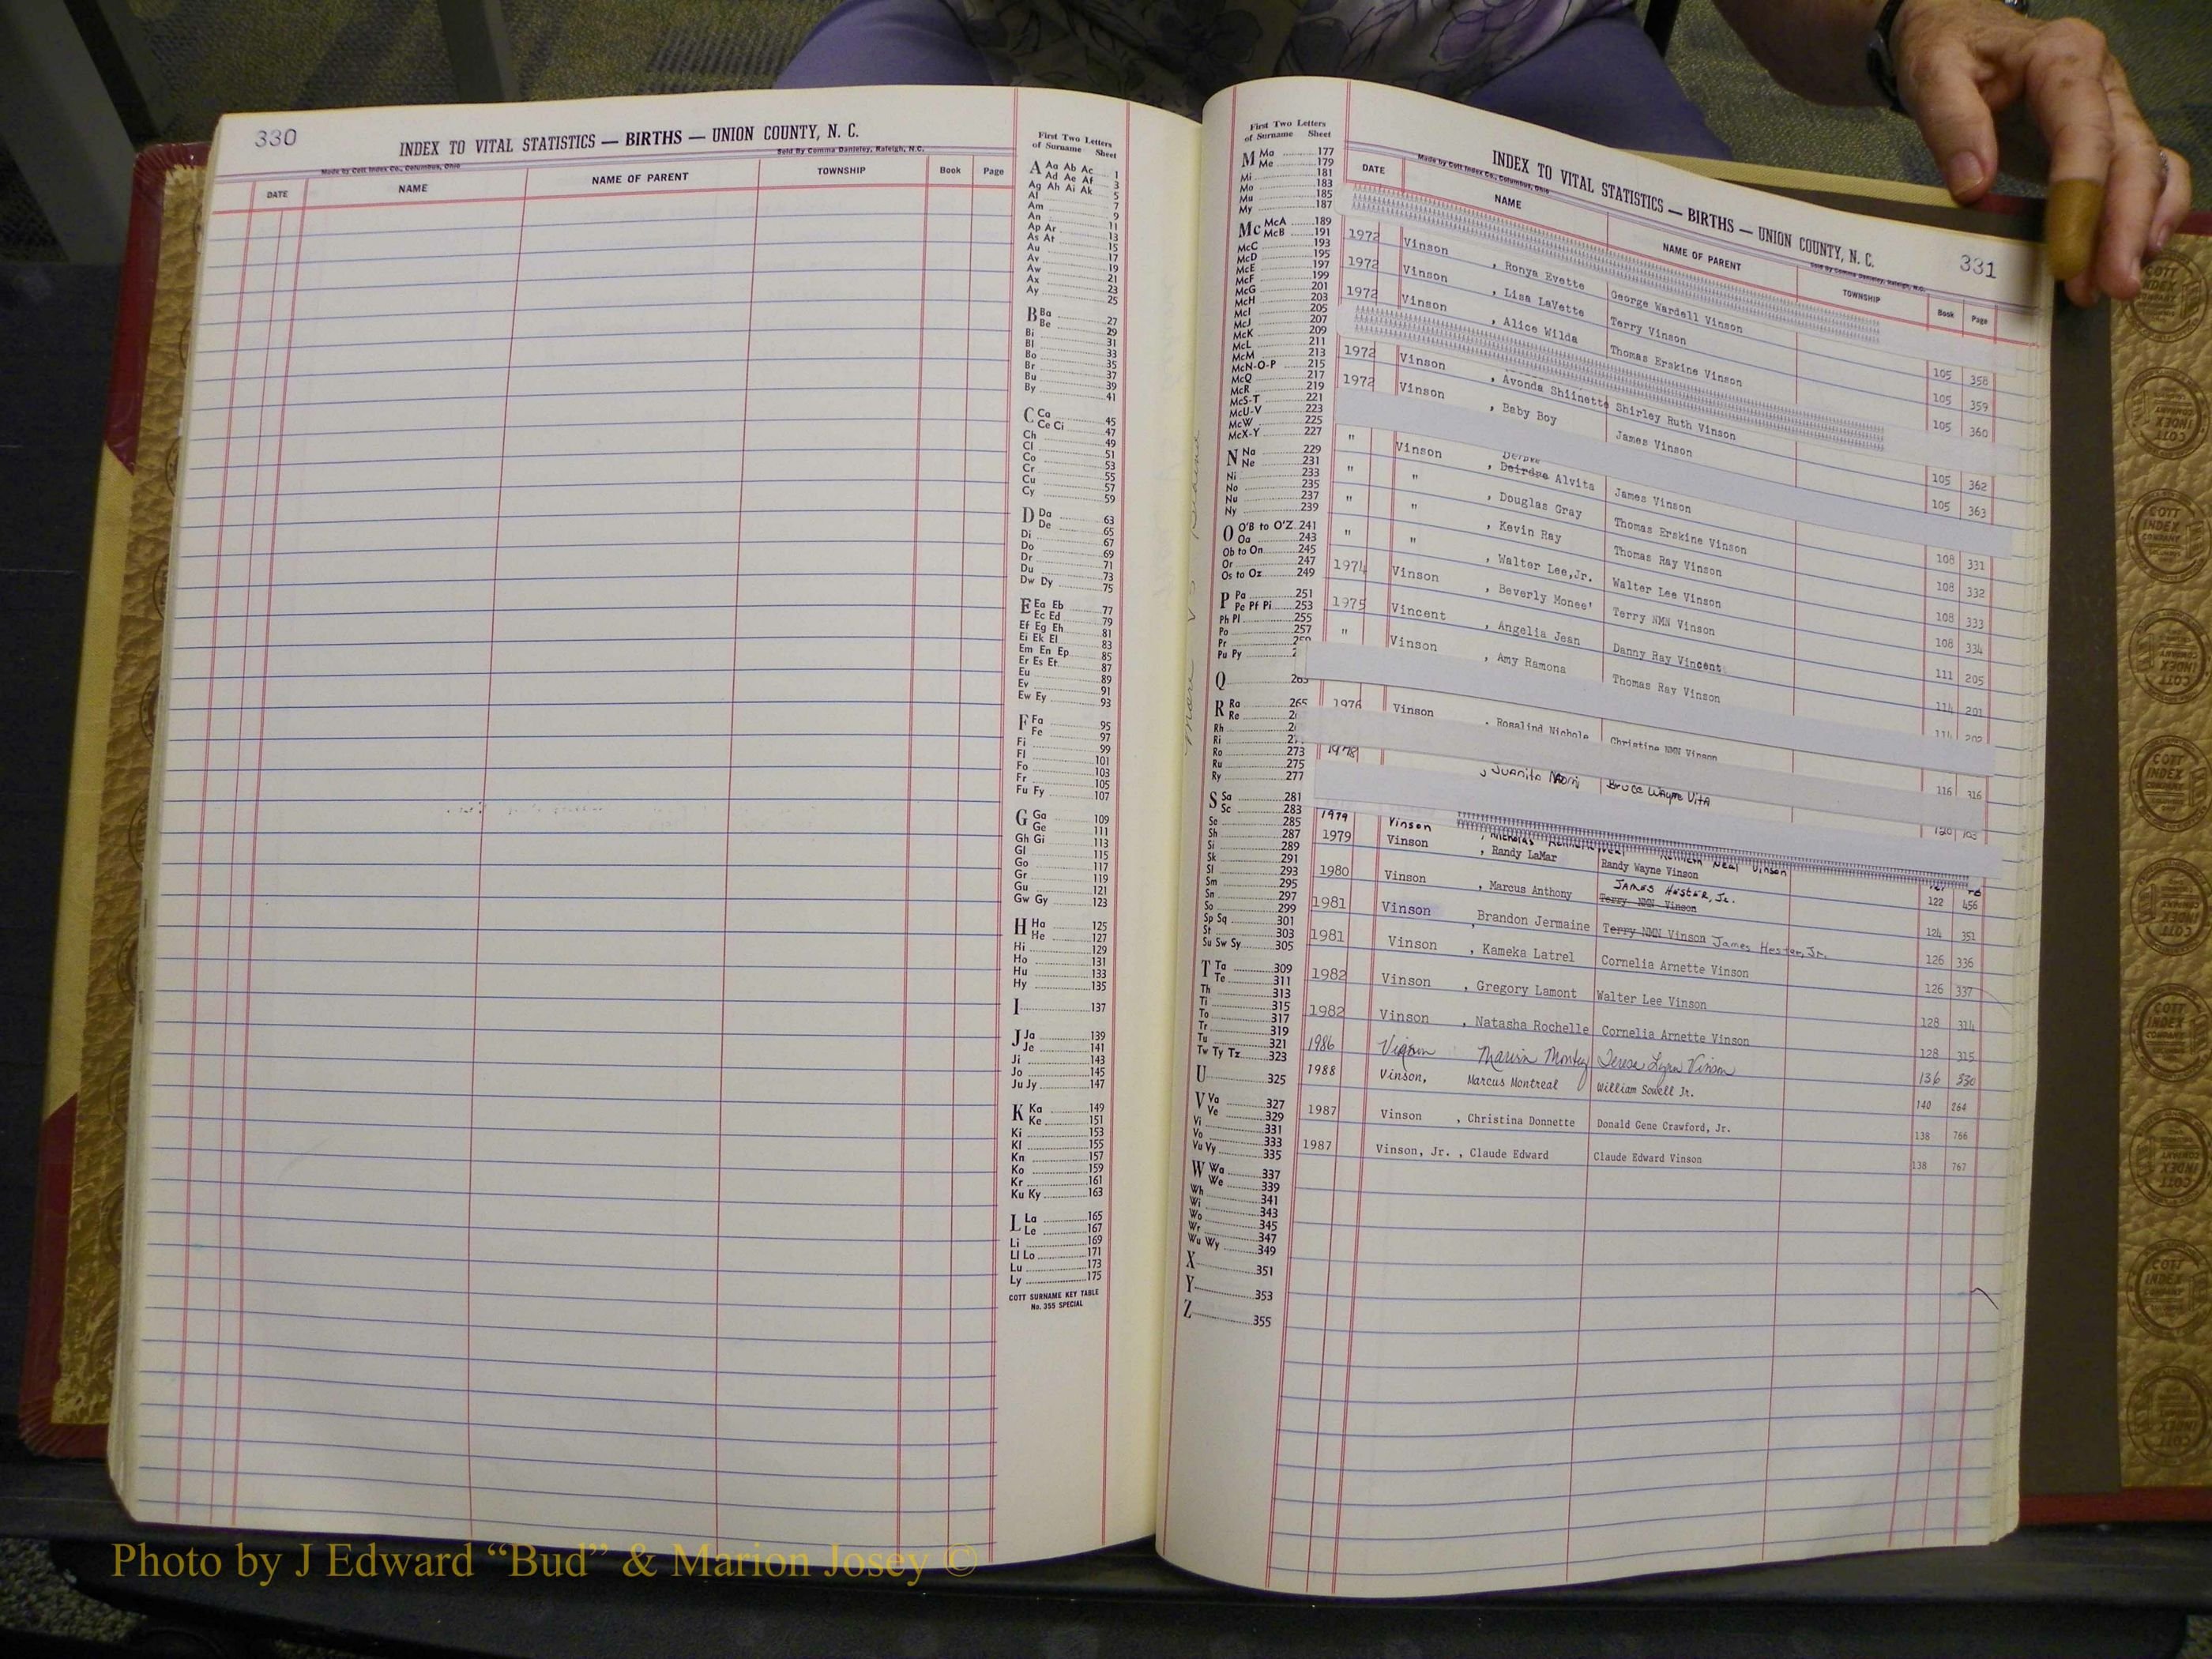 330
INDEX TO VITAL STATISTICS — BIRTHS — UNION COUNTY, N. C.
Made by Cott Index Co., Columbus, Ohio
Sold By Comma Danieley, Raleigh, N.C.
DATE NAME NAME OF PARENT TOWNSHIP Book Page
First Two Letters
of Surname Sheet
A Aa Ab Ac 1
Ad Ae Af 3
Ag Ah Ai Ak 5
Al 7
Am 9
An 11
Ap Ar 13
As At 15
Au 17
Av 19
Aw 21
Ax 23
Ay 25
B Ba 27
Be 29
Bi 31
Bl 33
Bo 35
Br 37
Bu 39
By 41
C Ca 45
Ce Ci 47
Ch 49
Cl 51
Co 53
Cr 55
Cu 57
Cy 59
D Da 63
De 65
Di 67
Do 69
Dr 71
Du 73
Dw Dy 75
E Ea Eb 77
Ec Ed 79
Ef Eg Eh 81
Ei Ek El 83
Em En Ep 85
Er Es Et 87
Eu 89
Ev 91
Ew Ey 93
F Fa 95
Fe 97
Fi 99
Fl 101
Fo 103
Fr 105
Fu Fy 107
G Ga 109
Ge 111
Gh Gi 113
Gl 115
Go 117
Gr 119
Gu 121
Gw Gy 123
H Ha 125
He 127
Hi 129
Ho 131
Hu 133
Hy 135
I 137
J Ja 139
Je 141
Ji 143
Jo 145
Ju Jy 147
K Ka 149
Ke 151
Ki 153
Kl 155
Kn 157
Ko 159
Kr 161
Ku Ky 163
L La 165
Le 167
Li 169
Ll Lo 171
Lu 173
Ly 175
COTT SURNAME KEY TABLE
No. 355 SPECIAL
First Two Letters
of Surname Sheet
M Ma 177
Me 179
Mi 181
Mo 183
Mu 185
My 187
Mc McA 189
McB 191
McC 193
McD 195
McE 197
McF 199
McG 201
McH 203
McI 205
McJ 207
McK 209
McL 211
McM 213
McN-O-P 215
McQ 217
McR 219
McS-T 221
McU-V 223
McW 225
McX-Y 227
N Na 229
Ne 231
Ni 233
No 235
Nu 237
Ny 239
O O'B to O'Z 241
Oa 243
Ob to On 245
Or 247
Os to Oz 249
P Pa 251
Pe Pf Pi 253
Ph Pl 255
Po 257
Pr
Pu Py
Q
R Ra 265
Re
Rh
Ri
Ro 273
Ru 275
Ry 277
S Sa 281
Sc 283
Se 285
Sh 287
Si 289
Sk 291
Sl 293
Sm 295
Sn 297
So 299
Sp Sq 301
St 303
Su Sw Sy 305
T Ta 309
Te 311
Th 313
Ti 315
To 317
Tr 319
Tu 321
Tw Ty Tz 323
U 325
V Va 327
Ve 329
Vi 331
Vo 333
Vu Vy 335
W Wa 337
We 339
Wh 341
Wi 343
Wo 345
Wr 347
Wu Wy 349
X 351
Y 353
Z 355
INDEX TO VITAL STATISTICS — BIRTHS — UNION COUNTY, N. C.
331
Made by Cott Index Co., Columbus, Ohio
Sold By Comma Danieley, Raleigh, N.C.
DATE NAME NAME OF PARENT TOWNSHIP Book Page
1972 Vinson , Ronya Evette George Wardell Vinson 105 358
1972 Vinson , Lisa LaVette Terry Vinson 105 359
1972 Vinson , Alice Wilda Thomas Erskine Vinson 105 360
1972 Vinson , Avonda Shiinette Shirley Ruth Vinson 105 362
1972 Vinson , Baby Boy James Vinson 105 363
" Vinson , Deirdre Alvita James Vinson 108 331
" " , Douglas Gray Thomas Erskine Vinson 108 332
" " , Kevin Ray Thomas Ray Vinson 108 333
" " , Walter Lee,Jr. Walter Lee Vinson 108 334
1974 Vinson , Beverly Monee' Terry NMN Vinson 111 205
1975 Vincent , Angelia Jean Danny Ray Vincent 114 201
" Vinson , Amy Ramona Thomas Ray Vinson 114 202
1976 Vinson , Rosalind Nichole Christine NMN Vinson 116 316
1978 , Juanita Naomi Bruce Wayne Vita
1979 Vinson
1979 Vinson , Randy LaMar Randy Wayne Vinson 122 456
1980 Vinson , Marcus Anthony Terry NMN Vinson JAMES HESTER, Jr. 124 351
1981 Vinson , Brandon Jermaine Terry NMN Vinson James Hester, Jr. 126 336
1981 Vinson , Kameka Latrel Cornelia Arnette Vinson 126 337
1982 Vinson , Gregory Lamont Walter Lee Vinson 128 314
1982 Vinson , Natasha Rochelle Cornelia Arnette Vinson 128 315
1986 Vinson Teresa Lynn Vinson 136 530
1988 Vinson, Marcus Montreal William Sowell Jr. 140 864
1987 Vinson , Christina Donnette Donald Gene Crawford, Jr. 138 766
1987 Vinson, Jr. , Claude Edward Claude Edward Vinson 138 767
COTT INDEX COMPANY
Photo by J Edward “Bud” & Marion Josey ©